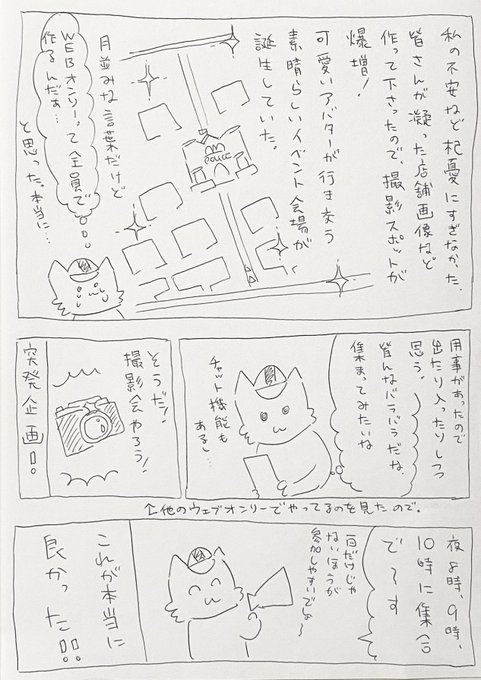 私の不安など杞憂にすぎなかった。
皆さんが凝った店舗画像など
作って下さったので、撮影スポットが
爆増!
可愛いアバターが行き交う
素晴らしいイベント会場が
誕生していた。
POLICE
月並みな言葉だけど
WEBオンリーって全員で
作るんだぁ…
と思った。本当に…
用事があったので
出たり入ったりしつつ
思う。
皆んなバラバラだな
集まってみたいな
チャット機能も
あるし…
そうだ!
撮影会やろう!
突発企画!!
↑他のウェブオンリーでやってるのを見たので。
夜8時、9時、
10時に集合
で〜す
一回だけじゃ
ないほうが
参加しやすいでしょ〜
これが本当に
良かった!!